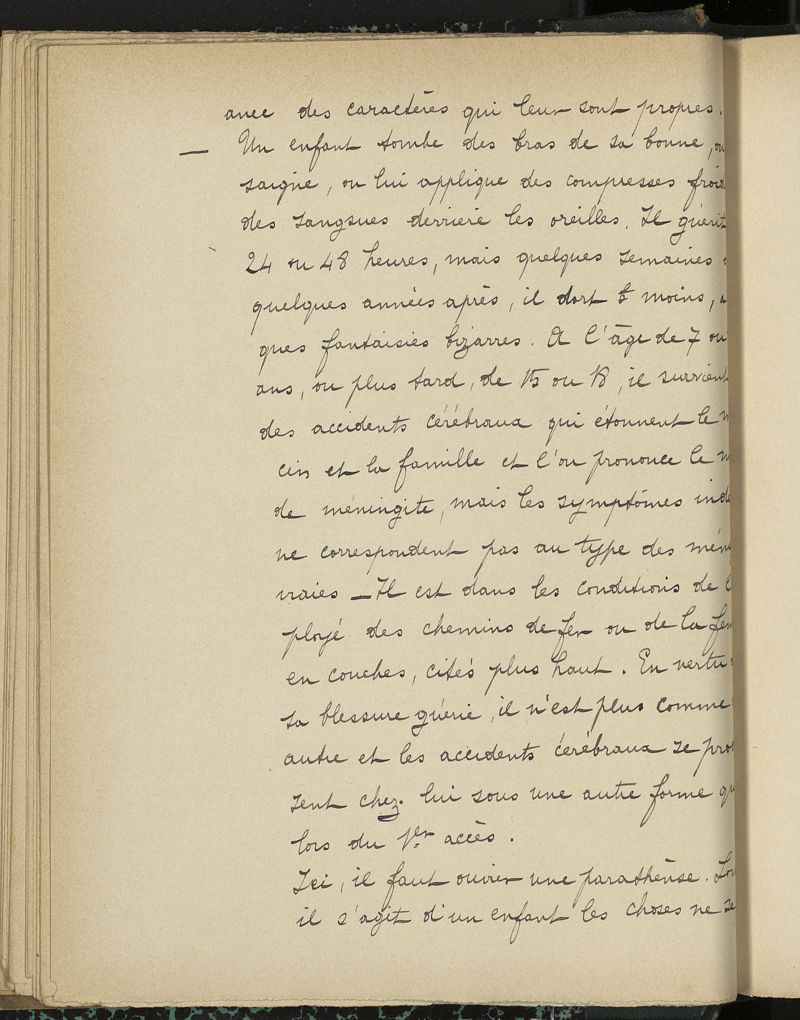 avec des caractères qui leur sont propres.
— Un enfant tombe des bras de sa bonne, on
saigne, on lui applique des compresses froid
des sangsues derrière les oreilles. Il guérit
24 ou 48 heures, mais quelques semaines
quelques années après, il dort moins,
ques fantaisies bizarres. A l'âge de 7 ou
ans, ou plus tard, de 15 ou 18, il survient
des accidents cérébraux qui étonnent le
cin et la famille et l'on prononce le
de méningite, mais les symptômes
ne correspondent pas au type des mén
vraies — Il est dans les conditions de l
ployé des chemins de fer ou de la fem
en couches, cités plus haut. En vertu
sa blessure guérie, il n'est plus comme
autre et les accidents cérébraux se pro
sent chez lui sous une autre forme qu
lors du 1er accès.
Ici, il faut ouvrir une parathèse.
il s'agit d'un enfant les choses ne se